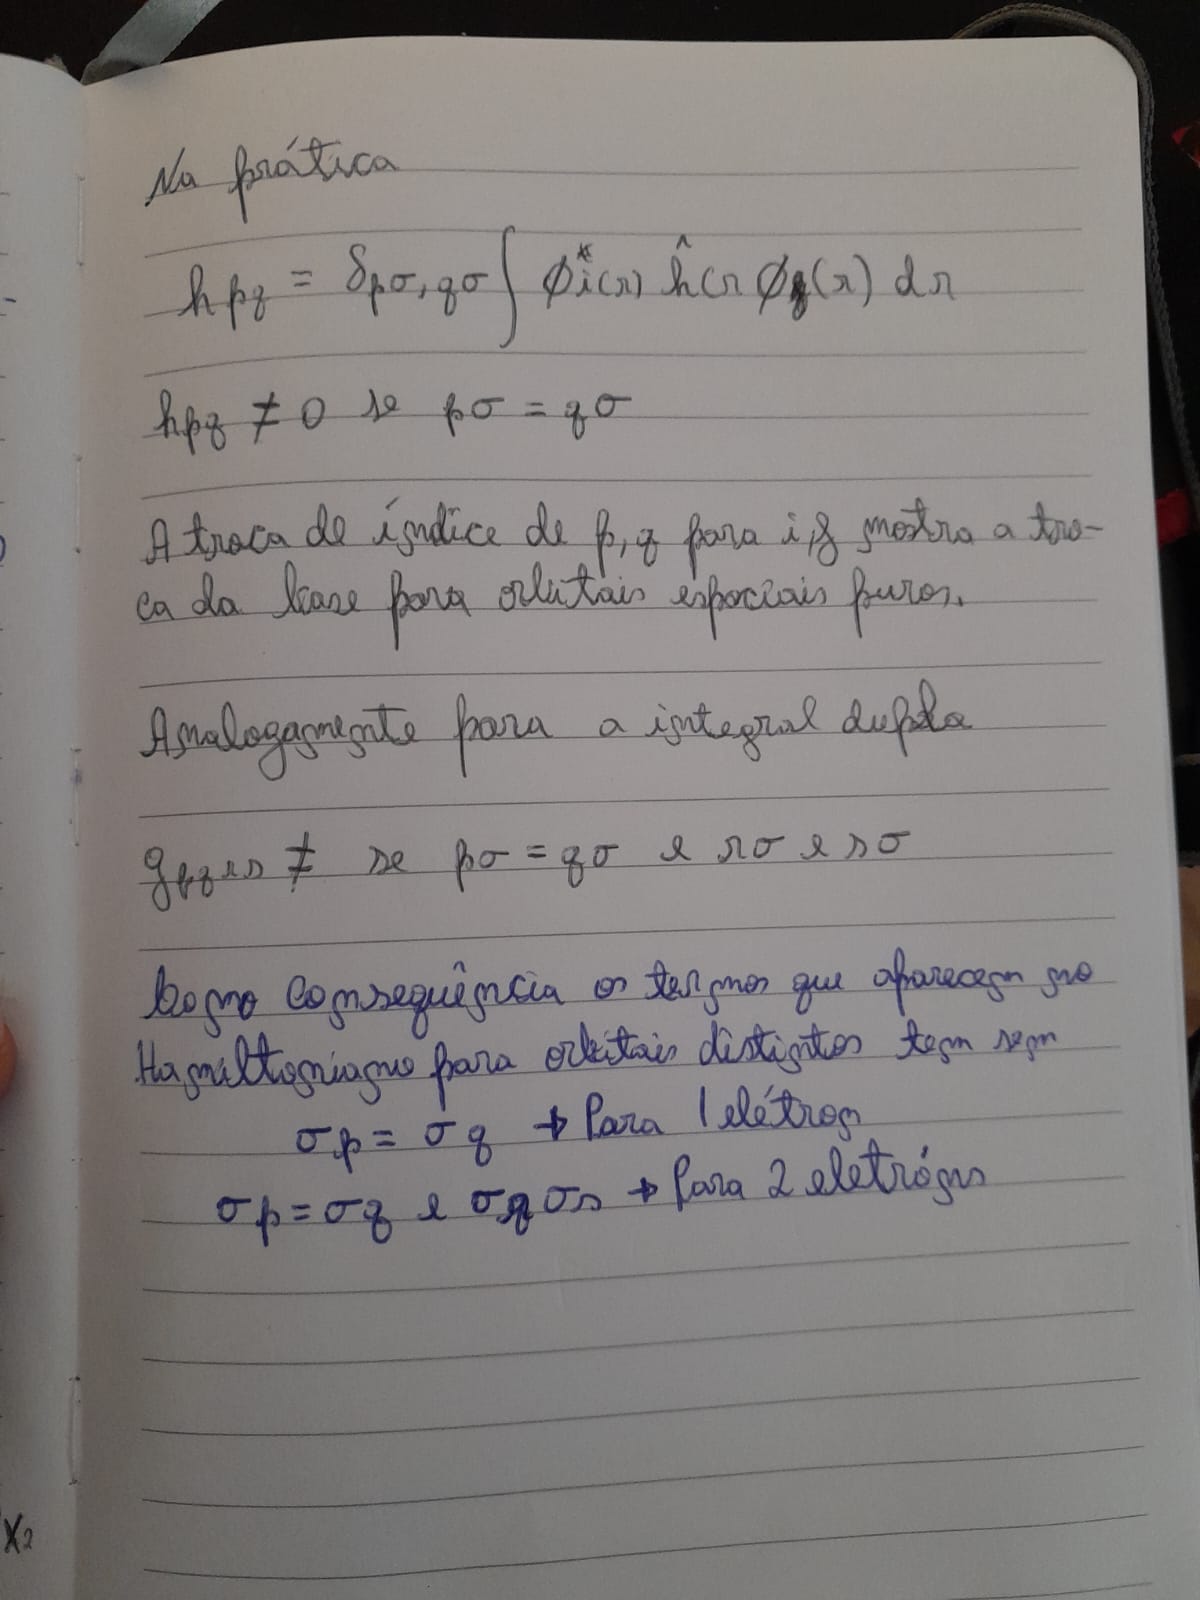 Na prática
hpq = δpσ,qσ ∫ ϕi*(r) ĥ(r ϕj(r) dr
hpq ≠ 0 se pσ = qσ
A troca de índice de p,q para i,j mostra a tro-
ca da base para orbitais espaciais puros.
Analogamente para a integral dupla
gpqrs ≠ se pσ = qσ e rσ e sσ
Como consequência os termos que aparecem no
Hamiltoniano para orbitais distintos tem sem
σp = σq → Para 1 elétron
σp = σq e σr σs → Para 2 eletróns
X2